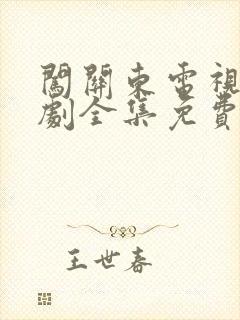 闖關東電視
劇全集免費
王世春